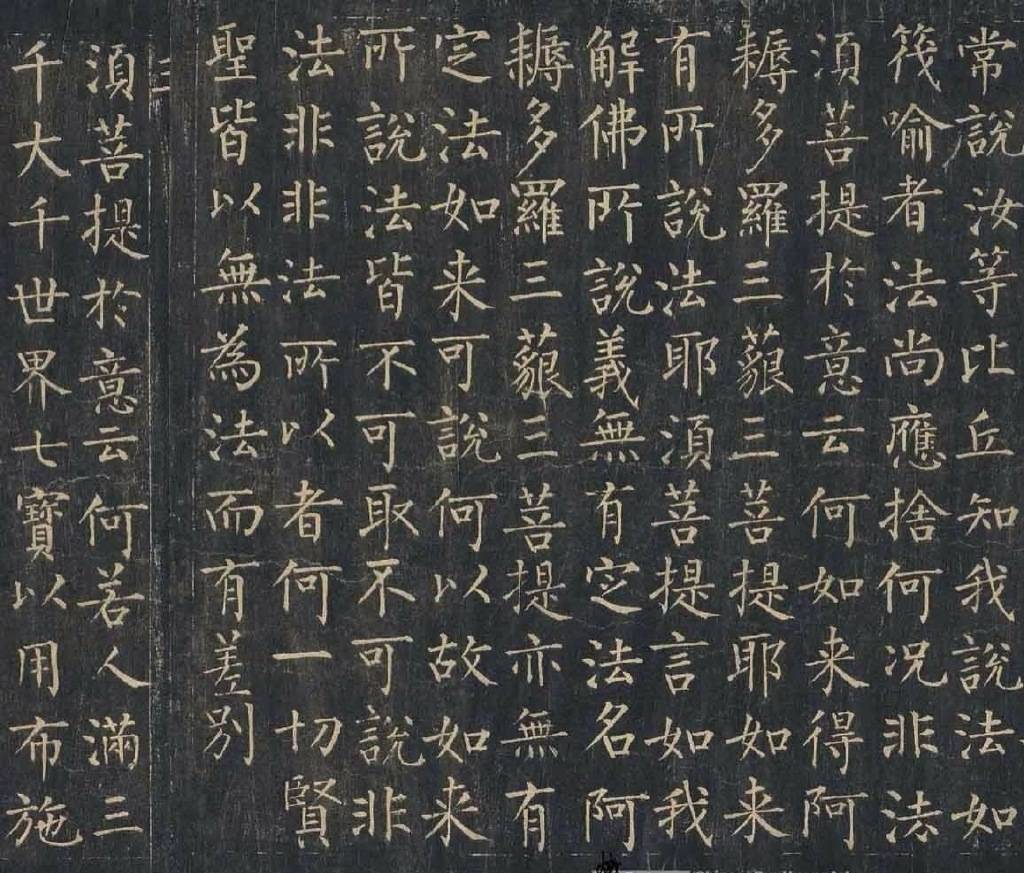 常說汝等比丘知我說法如
筏喻者法尚應捨何況非法
須菩提於意云何如来得阿
耨多羅三藐三菩提耶如来
有所說法耶須菩提言如我
解佛所說義無有定法名阿
耨多羅三藐三菩提亦無有
定法如来可說何以故如来
所說法皆不可取不可說非
法非非法所以者何一切賢
聖皆以無為法而有差別
三
須菩提於意云何若人滿三
千大千世界七寶以用布施